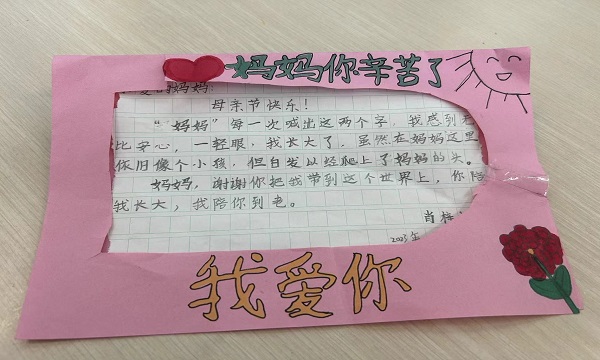 妈妈你辛苦了
妈妈
母亲节快乐！
“妈妈”每一次喊出这两个字，我感到无
比安心，一轻眼，我长大了，虽然在妈妈这里
依旧像个小孩，但白发以经爬上了妈妈的头。
妈妈，谢谢你把我带到这个世界上，你陪
我长大，我陪你到老。
肖
2023年
我爱你